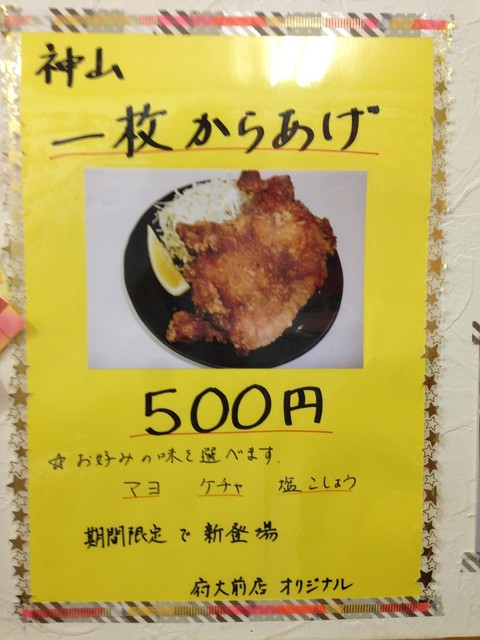 神山
一枚からあげ
500円
☆お好みの味を選べます.
マヨ ケチャ 塩こしょう
期間限定で新登場
府大前店 オリジナル